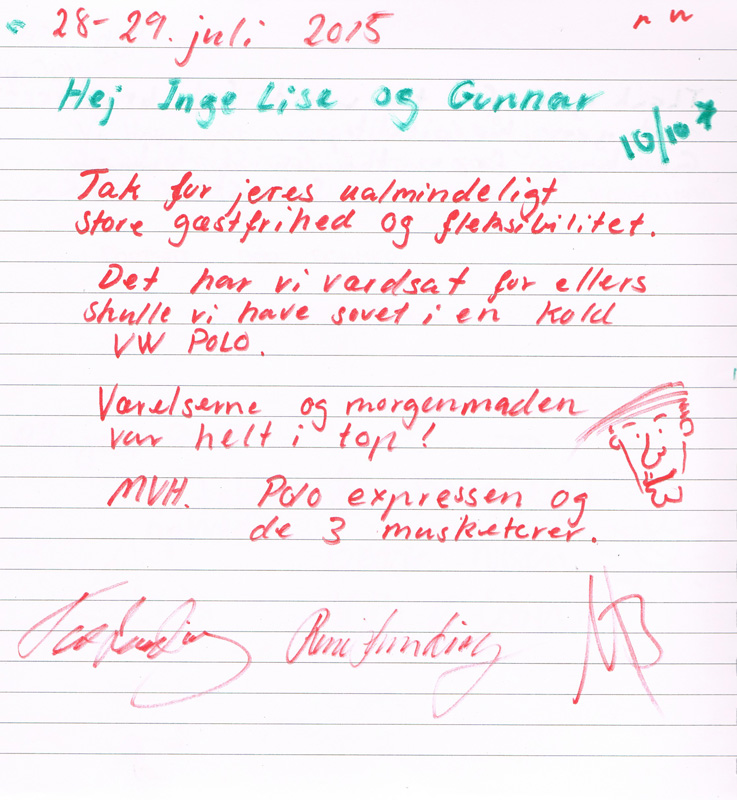 28-29. juli 2015
Hej Inge Lise og Gunnar
10/10 *
Tak for jeres ualmindeligt
store gæstfrihed og fleksibilitet.
Det har vi værdsat for ellers
skulle vi have sovet i en kold
VW POLO.
Værelserne og morgenmaden
var helt i top!
MVH. Polo expressen og
de 3 musketerer.